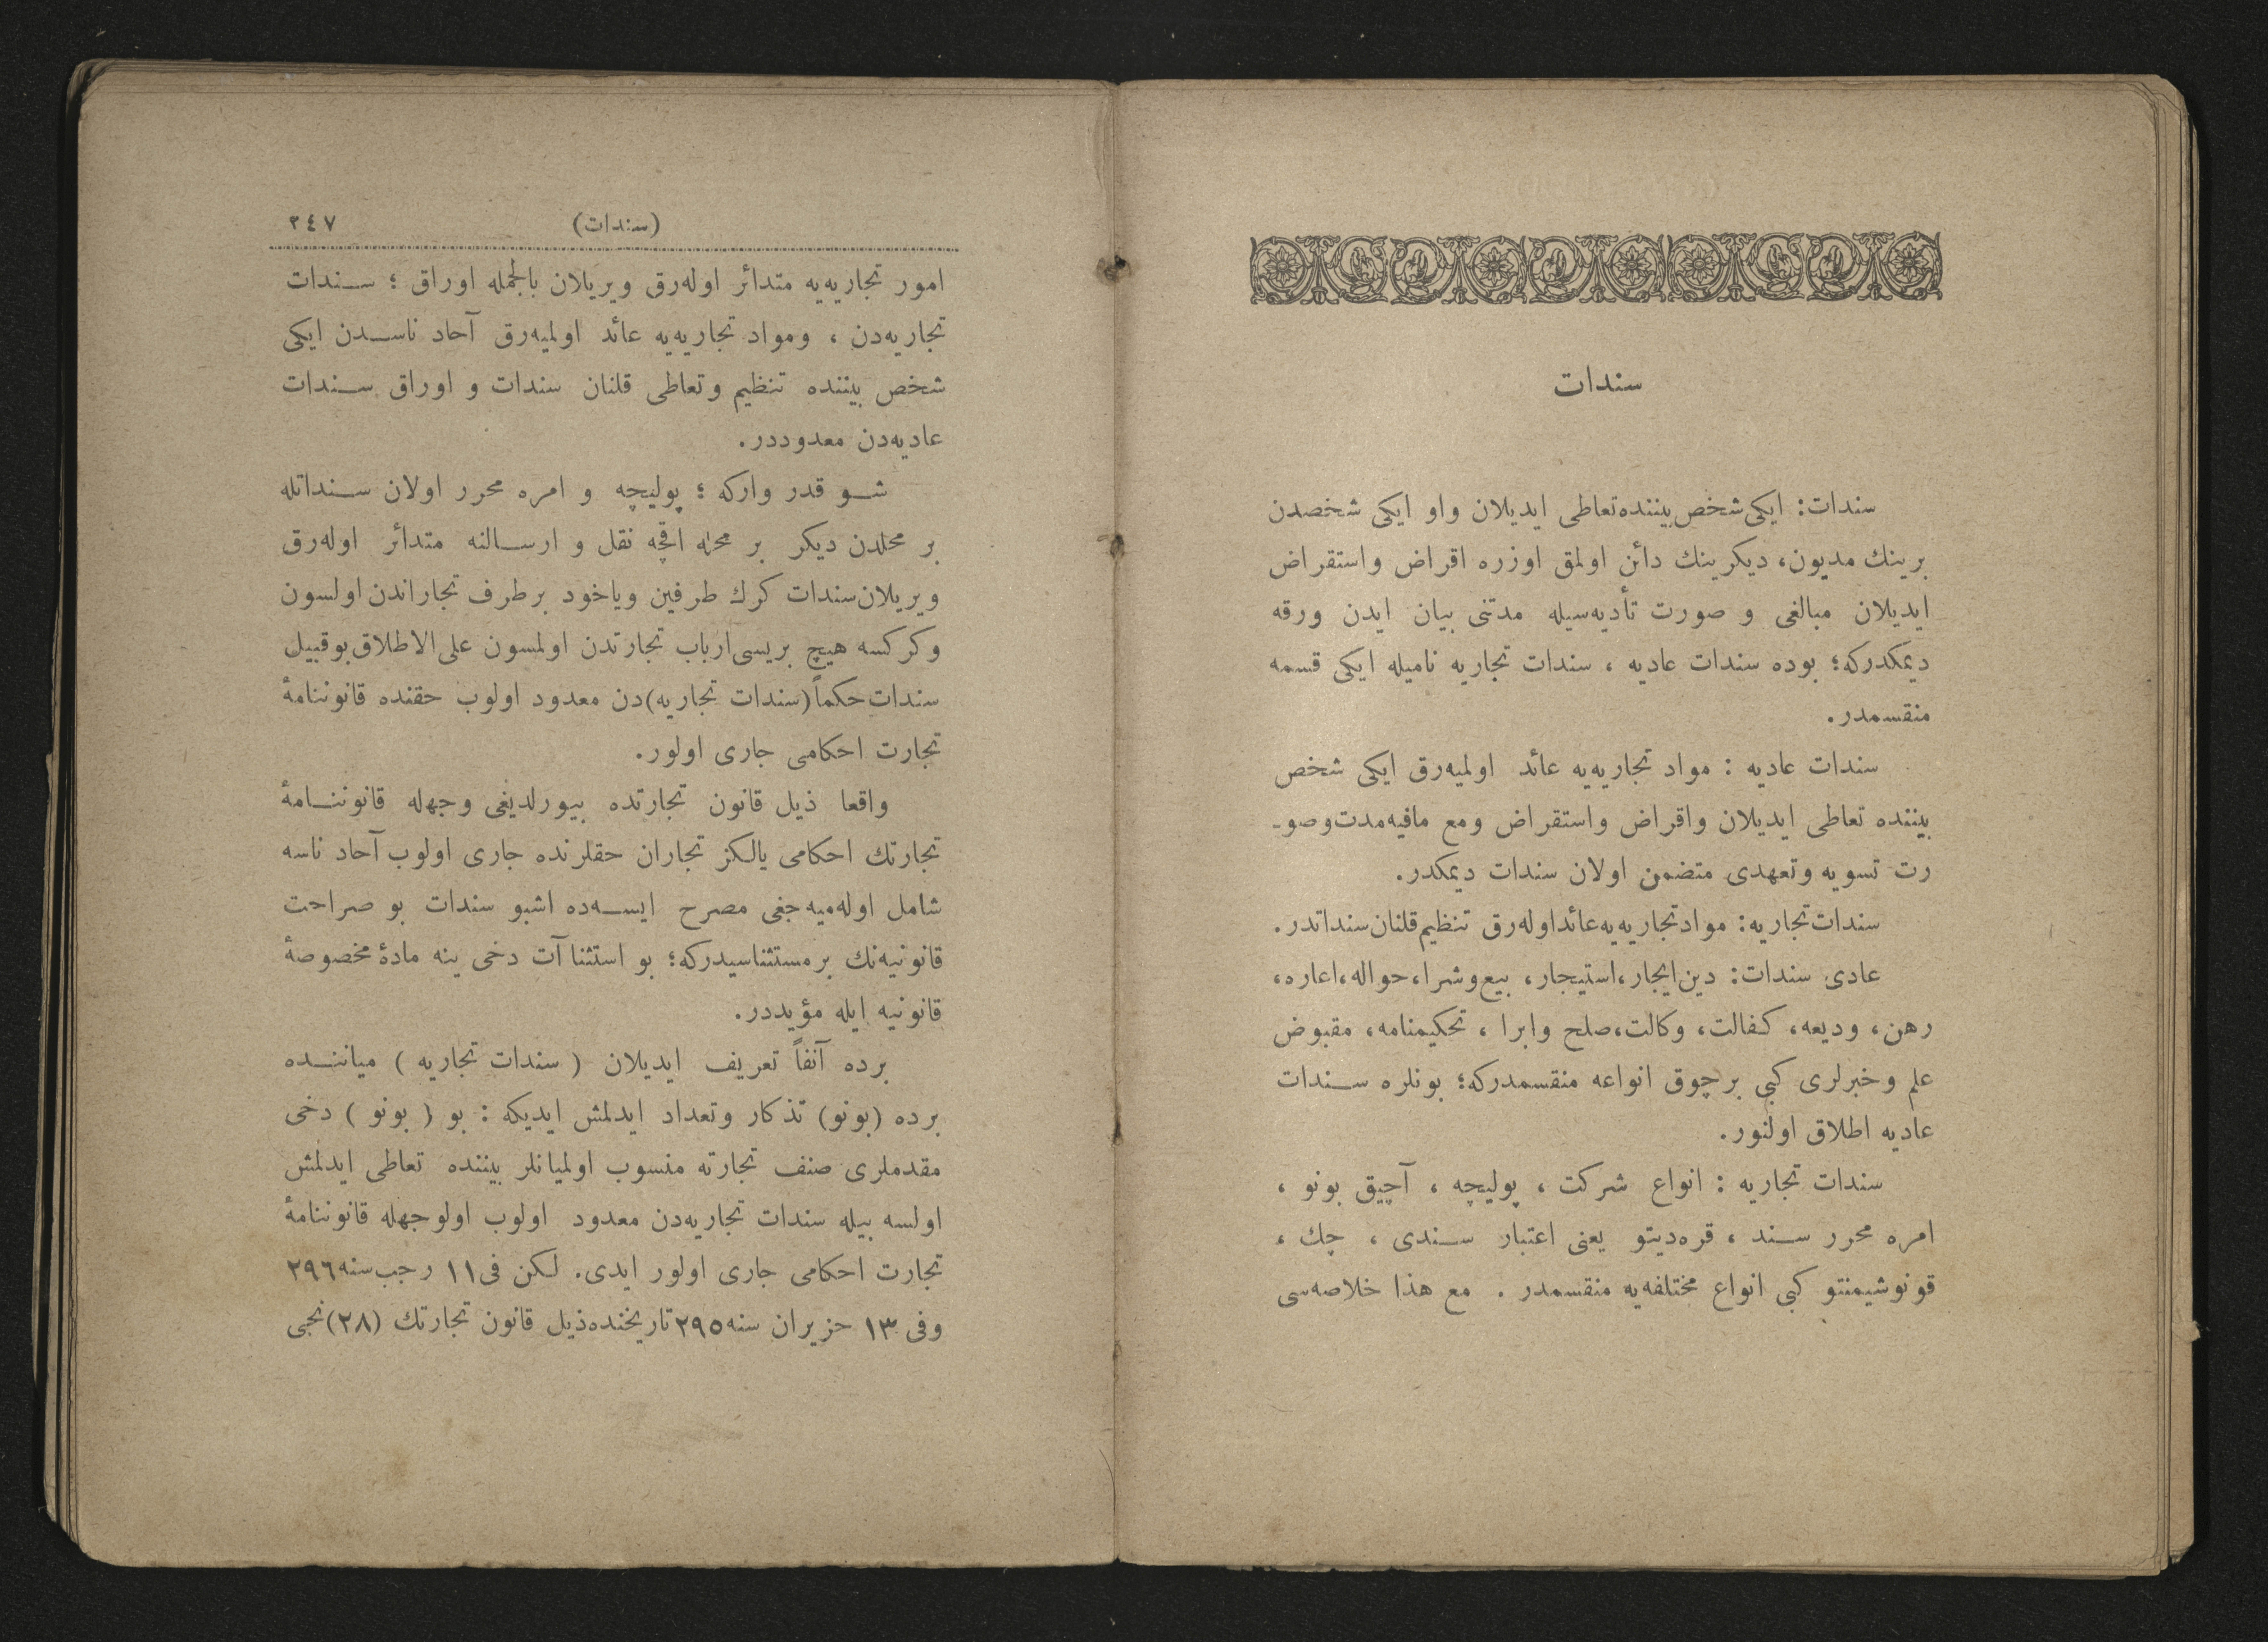 سندات
سندات: ایکی شخص بیننده تعاطی ایدیلان واو ایکی شخصدن
برینك مدیون، دیکرینك دائن اولمق اوزره اقراض واستقراض
ایدیلان مبالغی و صورت تأدیه‌سیله مدتنی بیان ایدن ورقه
دیمکدرکه؛ بوده سندات عادیه ، سندات تجاریه نامیله ایکی قسمه
منقسمدر.
سندات عادیه : مواد تجاریه‌یه عائد اولمیه‌رق ایکی شخص
بیننده تعاطی ایدیلان واقراض واستقراض ومع مافیه مدت وصو-
رت تسویه وتعهدی متضمن اولان سندات دیمکدر.
سندات تجاریه: مواد تجاریه‌یه عائد اوله‌رق تنظیم قلنان سنداتدر.
عادی سندات: دین ایجار، استیجار، بیع وشرا، حواله، اعاره،
رهن، ودیعه، کفالت، وکالت، صلح وابرا ، تحکیمنامه، مقبوض
علم وخبرلری کبی برچوق انواعه منقسمدرکه؛ بونلره سندات
عادیه اطلاق اولنور.
سندات تجاریه : انواع شرکت ، پولیچه ، آچیق بونو ،
امره محرر سند ، قره‌دیتو یعنی اعتبار سندی ، چك ،
قونوشیمنتو کبی انواع مختلفه‌یه منقسمدر . مع هذا خلاصه‌سی
(سندات) ٢٤٧
امور تجاریه‌یه متدائر اوله‌رق ویریلان بالجمله اوراق ؛ سندات
تجاریه‌دن ، ومواد تجاریه‌یه عائد اولمیه‌رق آحاد ناسدن ایکی
شخص بیننده تنظیم وتعاطی قلنان سندات و اوراق سندات
عادیه‌دن معدوددر.
شو قدر وارکه ؛ پولیچه و امره محرر اولان سنداتله
بر محلدن دیکر بر محله اقچه نقل و ارسالنه متدائر اوله‌رق
ویریلان سندات کرك طرفین ویاخود برطرف تجاراندن اولسون
وکرکسه هیچ بریسی ارباب تجارتدن اولمسون علی الاطلاق بوقبیل
سندات حکماً (سندات تجاریه)دن معدود اولوب حقنده قانوننامهٔ
تجارت احکامی جاری اولور.
واقعا ذیل قانون تجارتده بیورلدیغی وجهله قانوننامهٔ
تجارتك احکامی یالکز تجاران حقلرنده جاری اولوب آحاد ناسه
شامل اوله‌میه‌جغی مصرح ایسه‌ده اشبو سندات بو صراحت
قانونیه‌نك برمستثناسیدرکه؛ بو استثناآت دخی ینه مادهٔ مخصوصهٔ
قانونیه ایله مؤیددر.
برده آنفاً تعریف ایدیلان ( سندات تجاریه ) میاننده
برده (بونو) تذکار وتعداد ایدلمش ایدیکه : بو ( بونو ) دخی
مقدملری صنف تجارته منسوب اولمیانلر بیننده تعاطی ایدلمش
اولسه بیله سندات تجاریه‌دن معدود اولوب اولوجهله قانوننامهٔ
تجارت احکامی جاری اولور ایدی. لکن فی ١١ رجب سنه ٢٩٦
وفی ١٣ حزیران سنه ٢٩٥ تاریخنده ذیل قانون تجارتك (٢٨)نجی